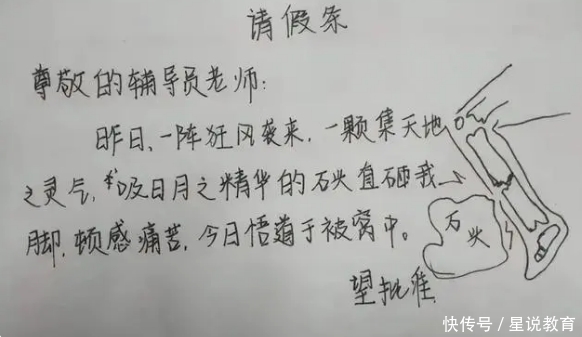 请假条
尊敬的辅导员老师:
昨日,一阵狂风袭来,一颗集天地
之灵气,吸日月之精华的石头直砸我
脚,顿感痛苦,今日悟道于被窝中。
石头
望批准
快传号/星说教育